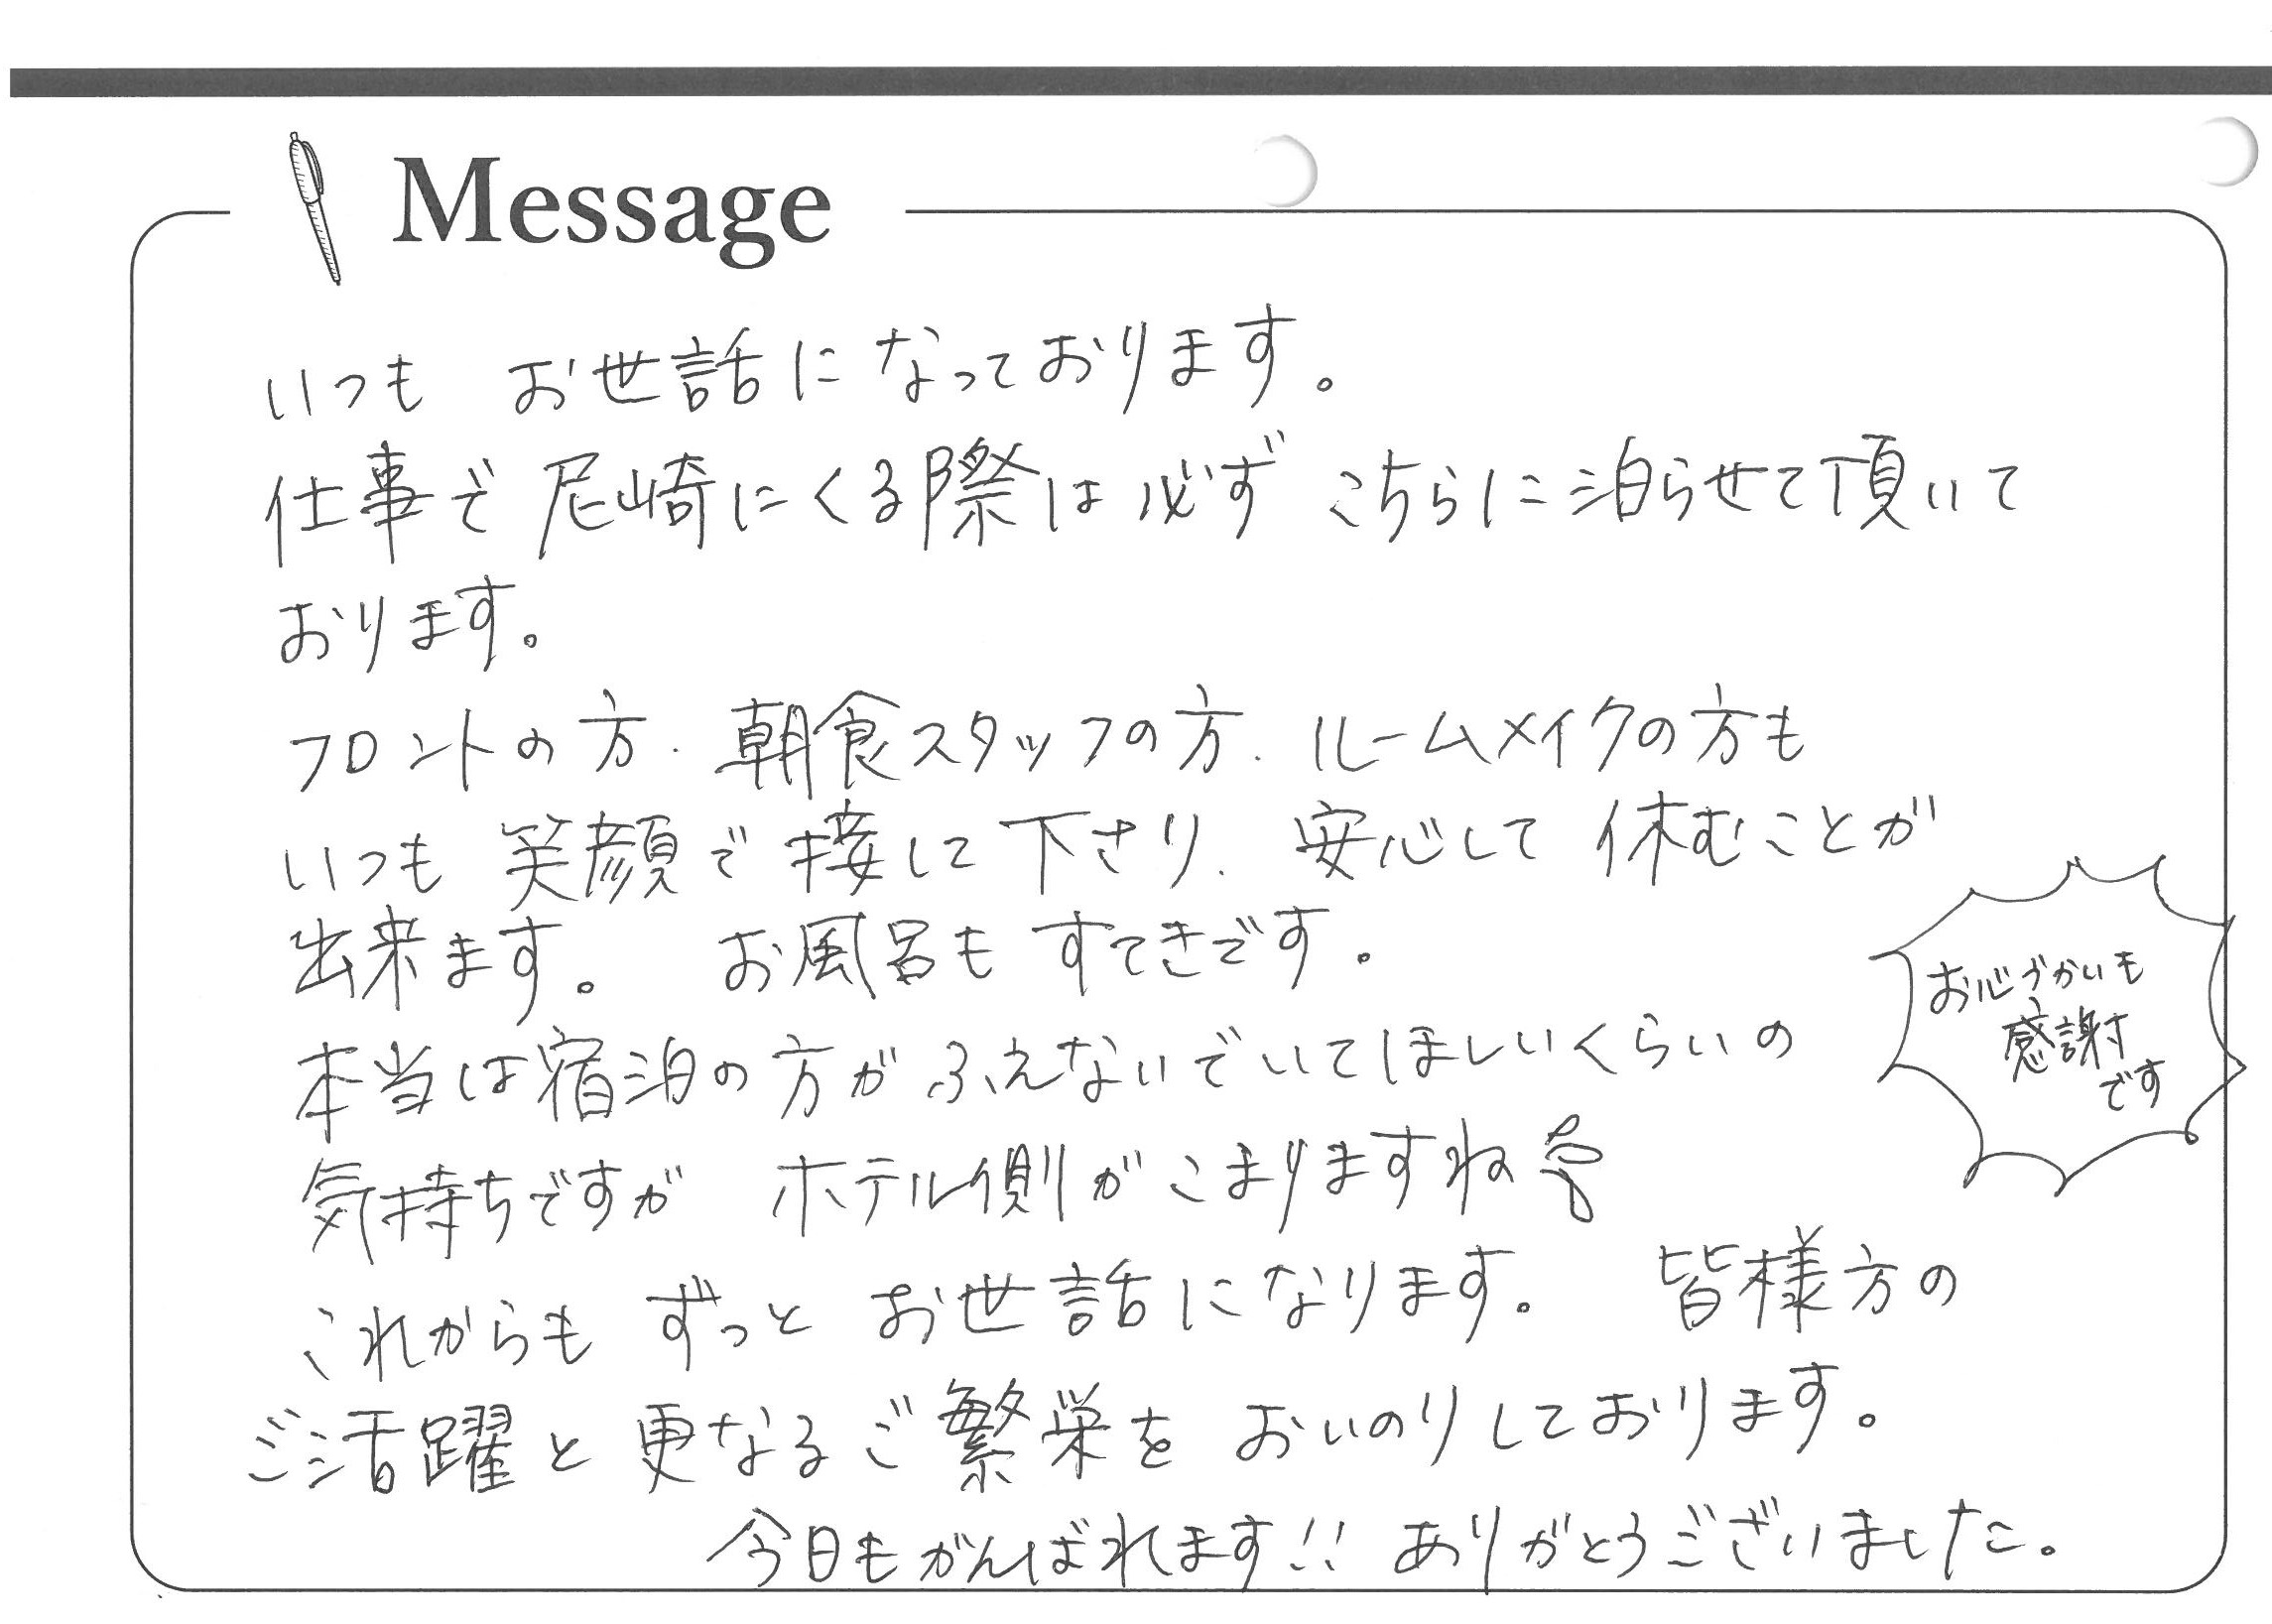 Message
いつも お世話になっております。
仕事で尼崎にくる際は必ず こちらに泊らせて頂いて
おります。
フロントの方、朝食スタッフの方、ルームメイクの方も
いつも 笑顔で接して下さり、安心して休むことが
出来ます。 お風呂もすてきです。
本当は宿泊の方がふえないでいてほしいくらいの
気持ちですが ホテル側がこまりますね
これからも ずっと お世話になります。 皆様方の
ご活躍と更なるご繁栄を おいのりしております。
今日もがんばれます!! ありがとうございました。
お心づかいも
感謝
です